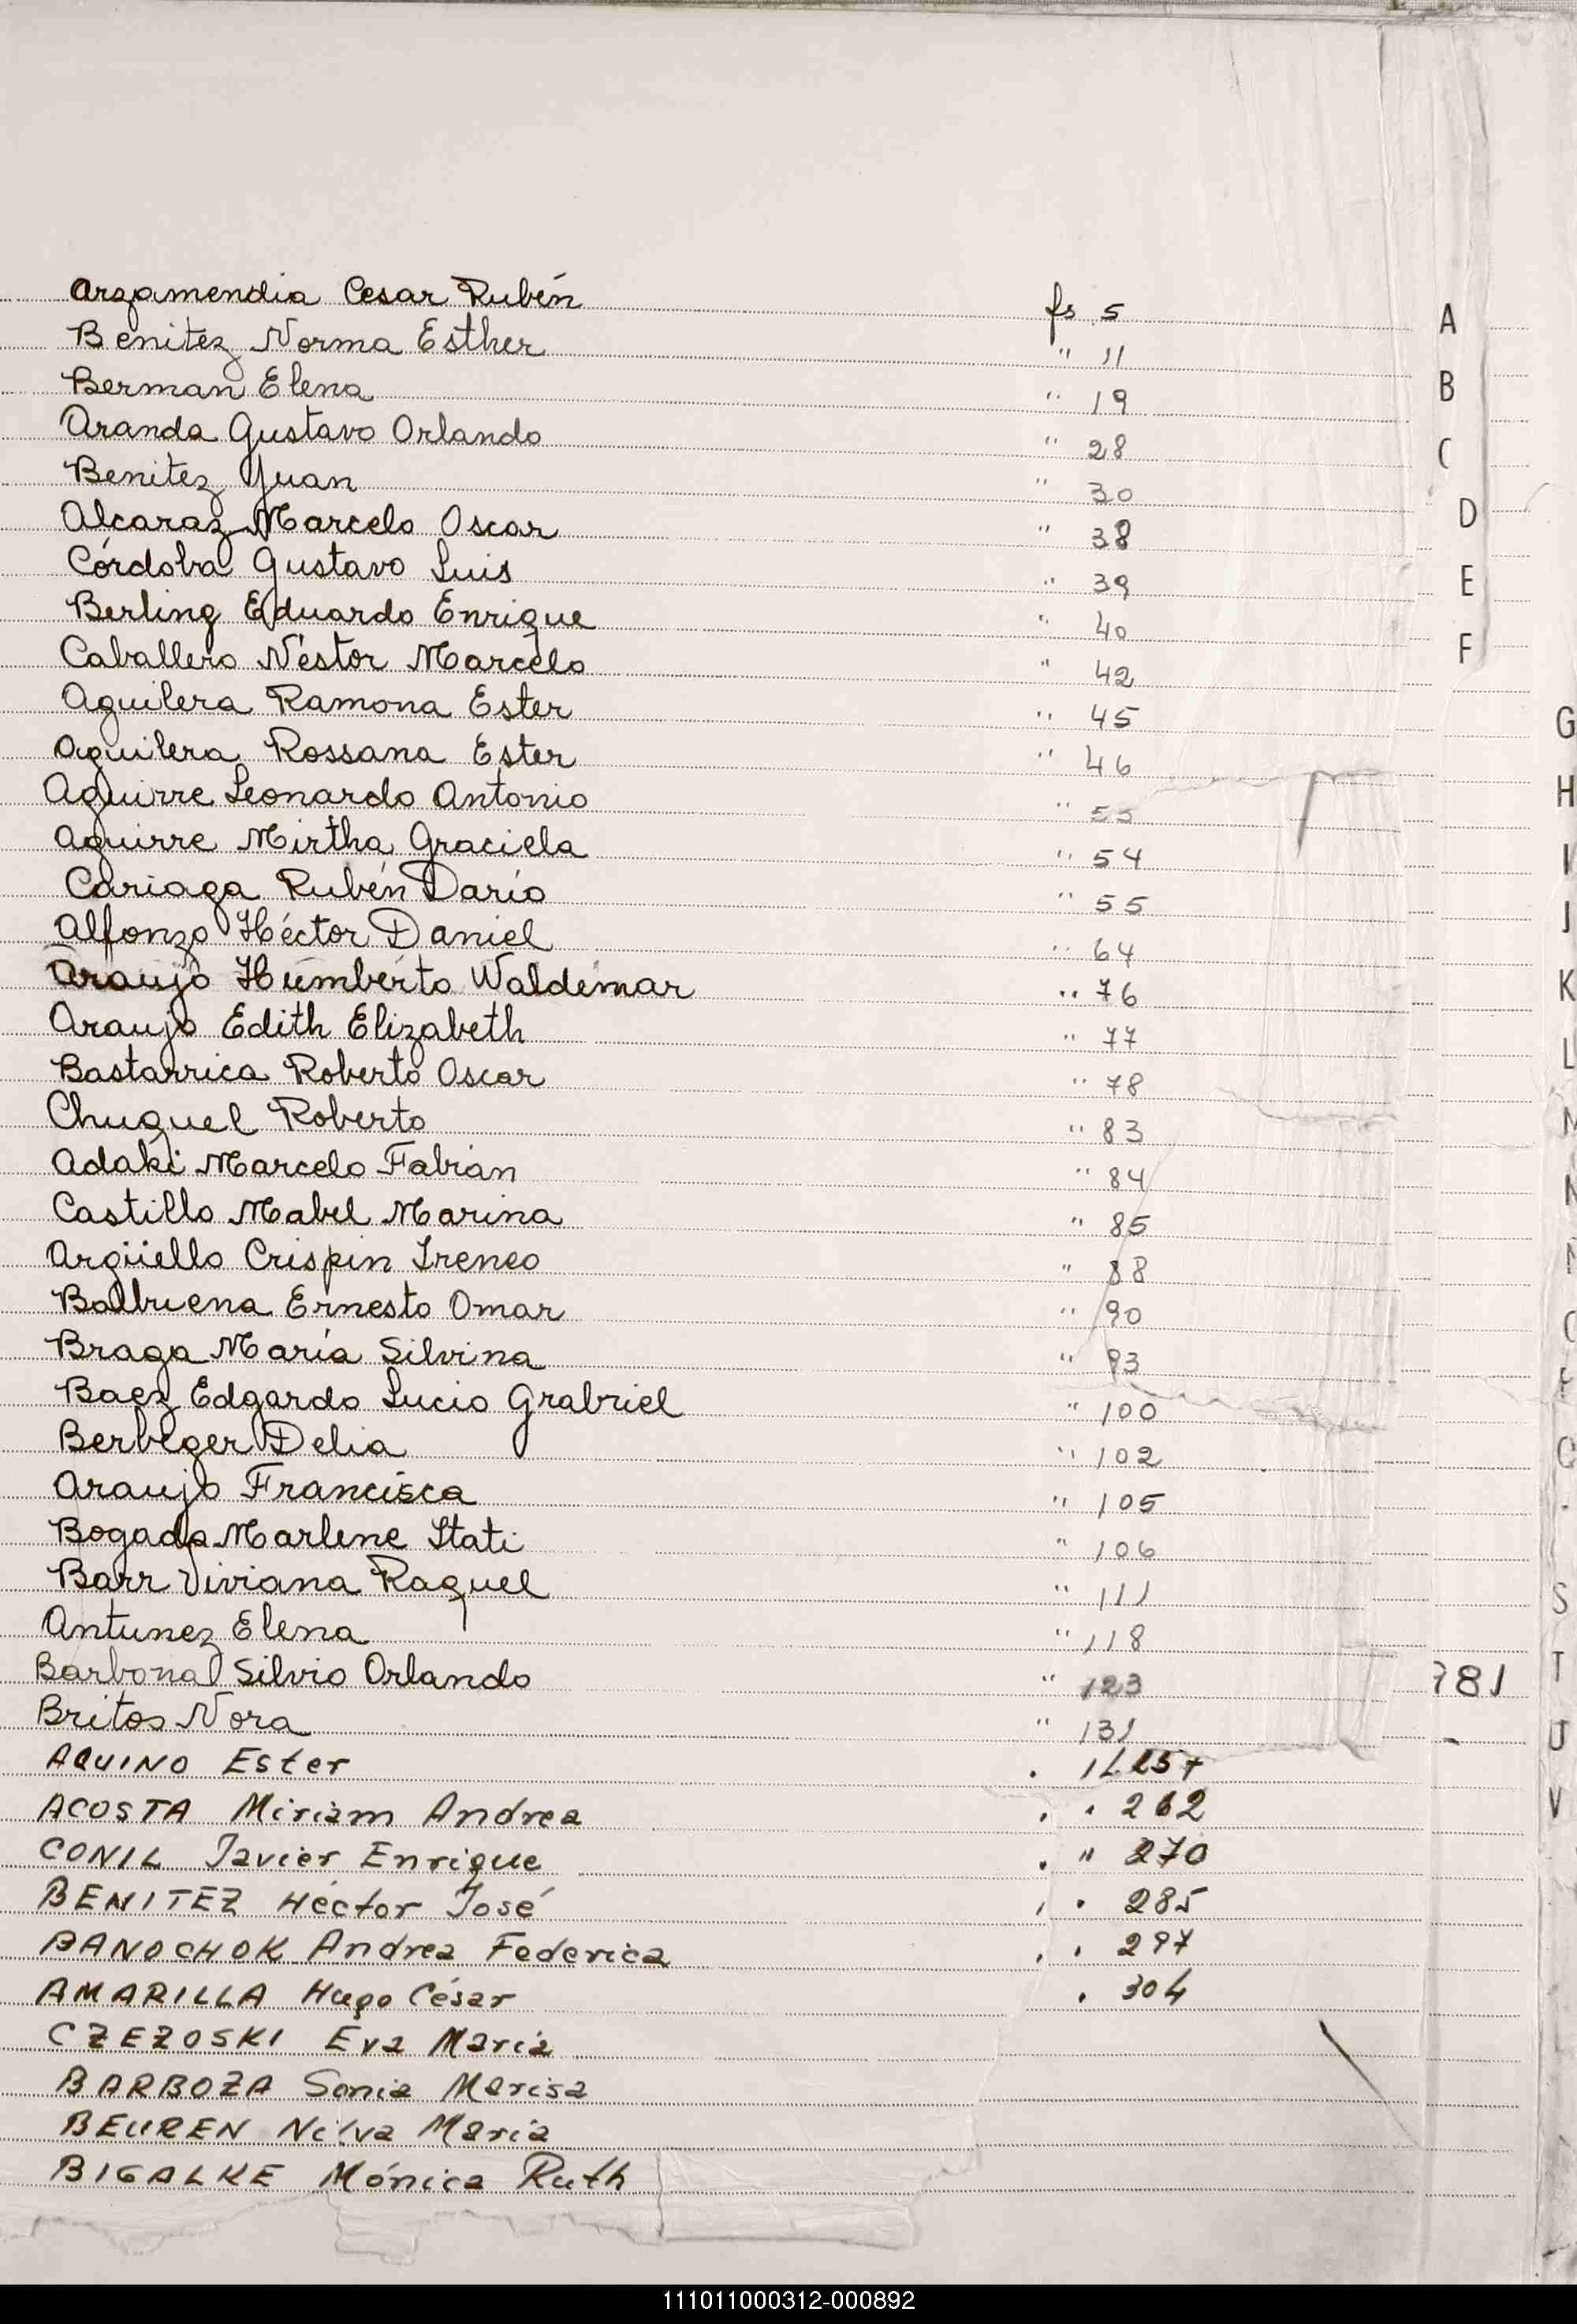 Arzamendia Cesar Rubén fs 5 A
Benitez Norma Esther " 11
Berman Elena " 19 B
Aranda Gustavo Orlando " 28
Benitez Juan " 30 C
Alcaraz Marcelo Oscar " 38 D
Córdoba Gustavo Luis " 39 E
Berling Eduardo Enrique " 40
Caballero Néstor Marcelo " 42 F
Aguilera Ramona Ester " 45 G
Aguilera Rossana Ester " 46
Aguirre Leonardo Antonio " H
Aguirre Mirtha Graciela " 54 I
Cariaga Rubén Darío " 55 J
Alfonzo Héctor Daniel " 64
Araujo Humberto Waldemar " 76 K
Araujo Edith Elizabeth " 77 L
Bastarrica Roberto Oscar " 78
Chuquel Roberto " 83 M
Adaki Marcelo Fabián " 84 N
Castillo Mabel Marina " 85
Argüello Crispin Ireneo " 88
Balbuena Ernesto Omar " 90
Braga María Silvina " 93
Baez Edgardo Lucio Grabriel " 100
Berbeger Delia " 102
Araujo Francisca " 105
Bogado Marlene Itati " 106
Barr Viviana Raquel " 111 S
Antunez Elena " 118
Barbona Silvio Orlando " 123 T
Britos Nora " 131 U
AQUINO Ester
ACOSTA Miriam Andrea " 262 V
CONIL Javier Enrique " 270
BENITEZ Héctor José " 285
BANOCHOK Andrea Federica " 297
AMARILLA Hugo César " 304
CZEZOSKI Eva Maria
BARBOZA Sonia Marisa
BEUREN Nilva María
BIGALKE Mónica Ruth
111011000312-000892